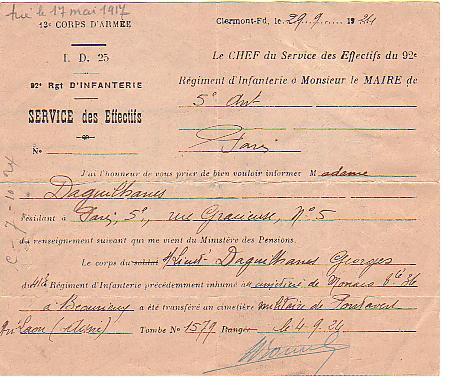 tué le 17 mai 1917
12e CORPS D'ARMÉE
Clermont-Fd, le 29.9. 1924
I. D. 25
Le CHEF du Service des Effectifs du 92e
92e Rgt D'INFANTERIE
Régiment d'Infanterie à Monsieur le MAIRE de
SERVICE des Effectifs
5e Arrt
Paris
No
J'ai l'honneur de vous prier de bien vouloir informer Madame
Daguilhanes
résidant à Paris, 5e, rue Gracieuse, No 5
du renseignement suivant qui me vient du Ministère des Pensions.
Le corps du soldat s/Lieut Daguilhanes Georges
du Régiment d'Infanterie précédemment inhumé au cimetière de
à Beaurieux a été transféré au cimetière militaire de Pontavert
Laon (Aisne) Tombe No 1579 Rangée le 4-9-24
C - 7 - 10 - 24